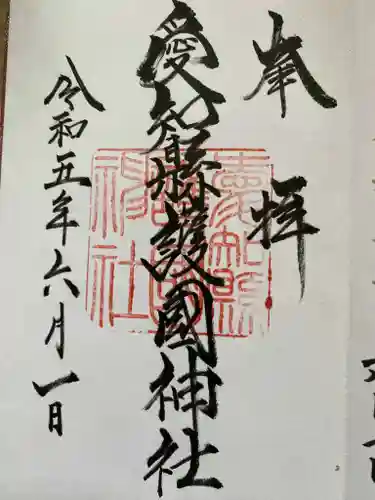 奉拝
愛知縣護國神社
愛知縣護國神社
令和五年六月一日